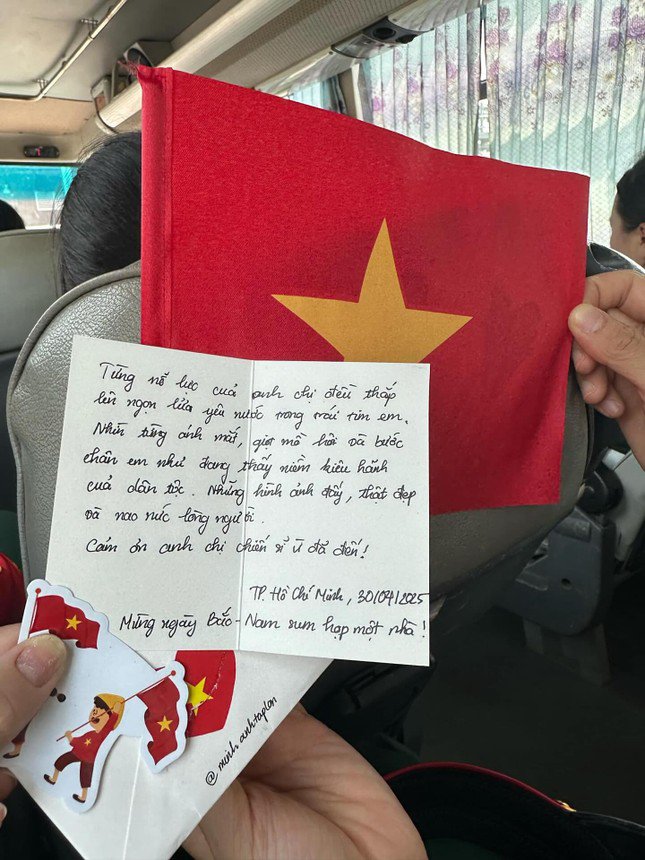 Từng nỗ lực cuả anh chị đều thắp
lên ngọn lửa yêu nước trong trái tim em.
Nhìn từng ánh mắt, giọt mồ hôi và bước
chân em như đang thấy niềm kiêu hãnh
cuả dân tộc. Những hình ảnh đấy, thật đẹp
và nao nức lòng người.
Cám ơn anh chị chiến sĩ vì đã đến!
TP. Hồ Chí Minh, 30/04/2025
Mừng ngày Bắc - Nam sum họp một nhà!